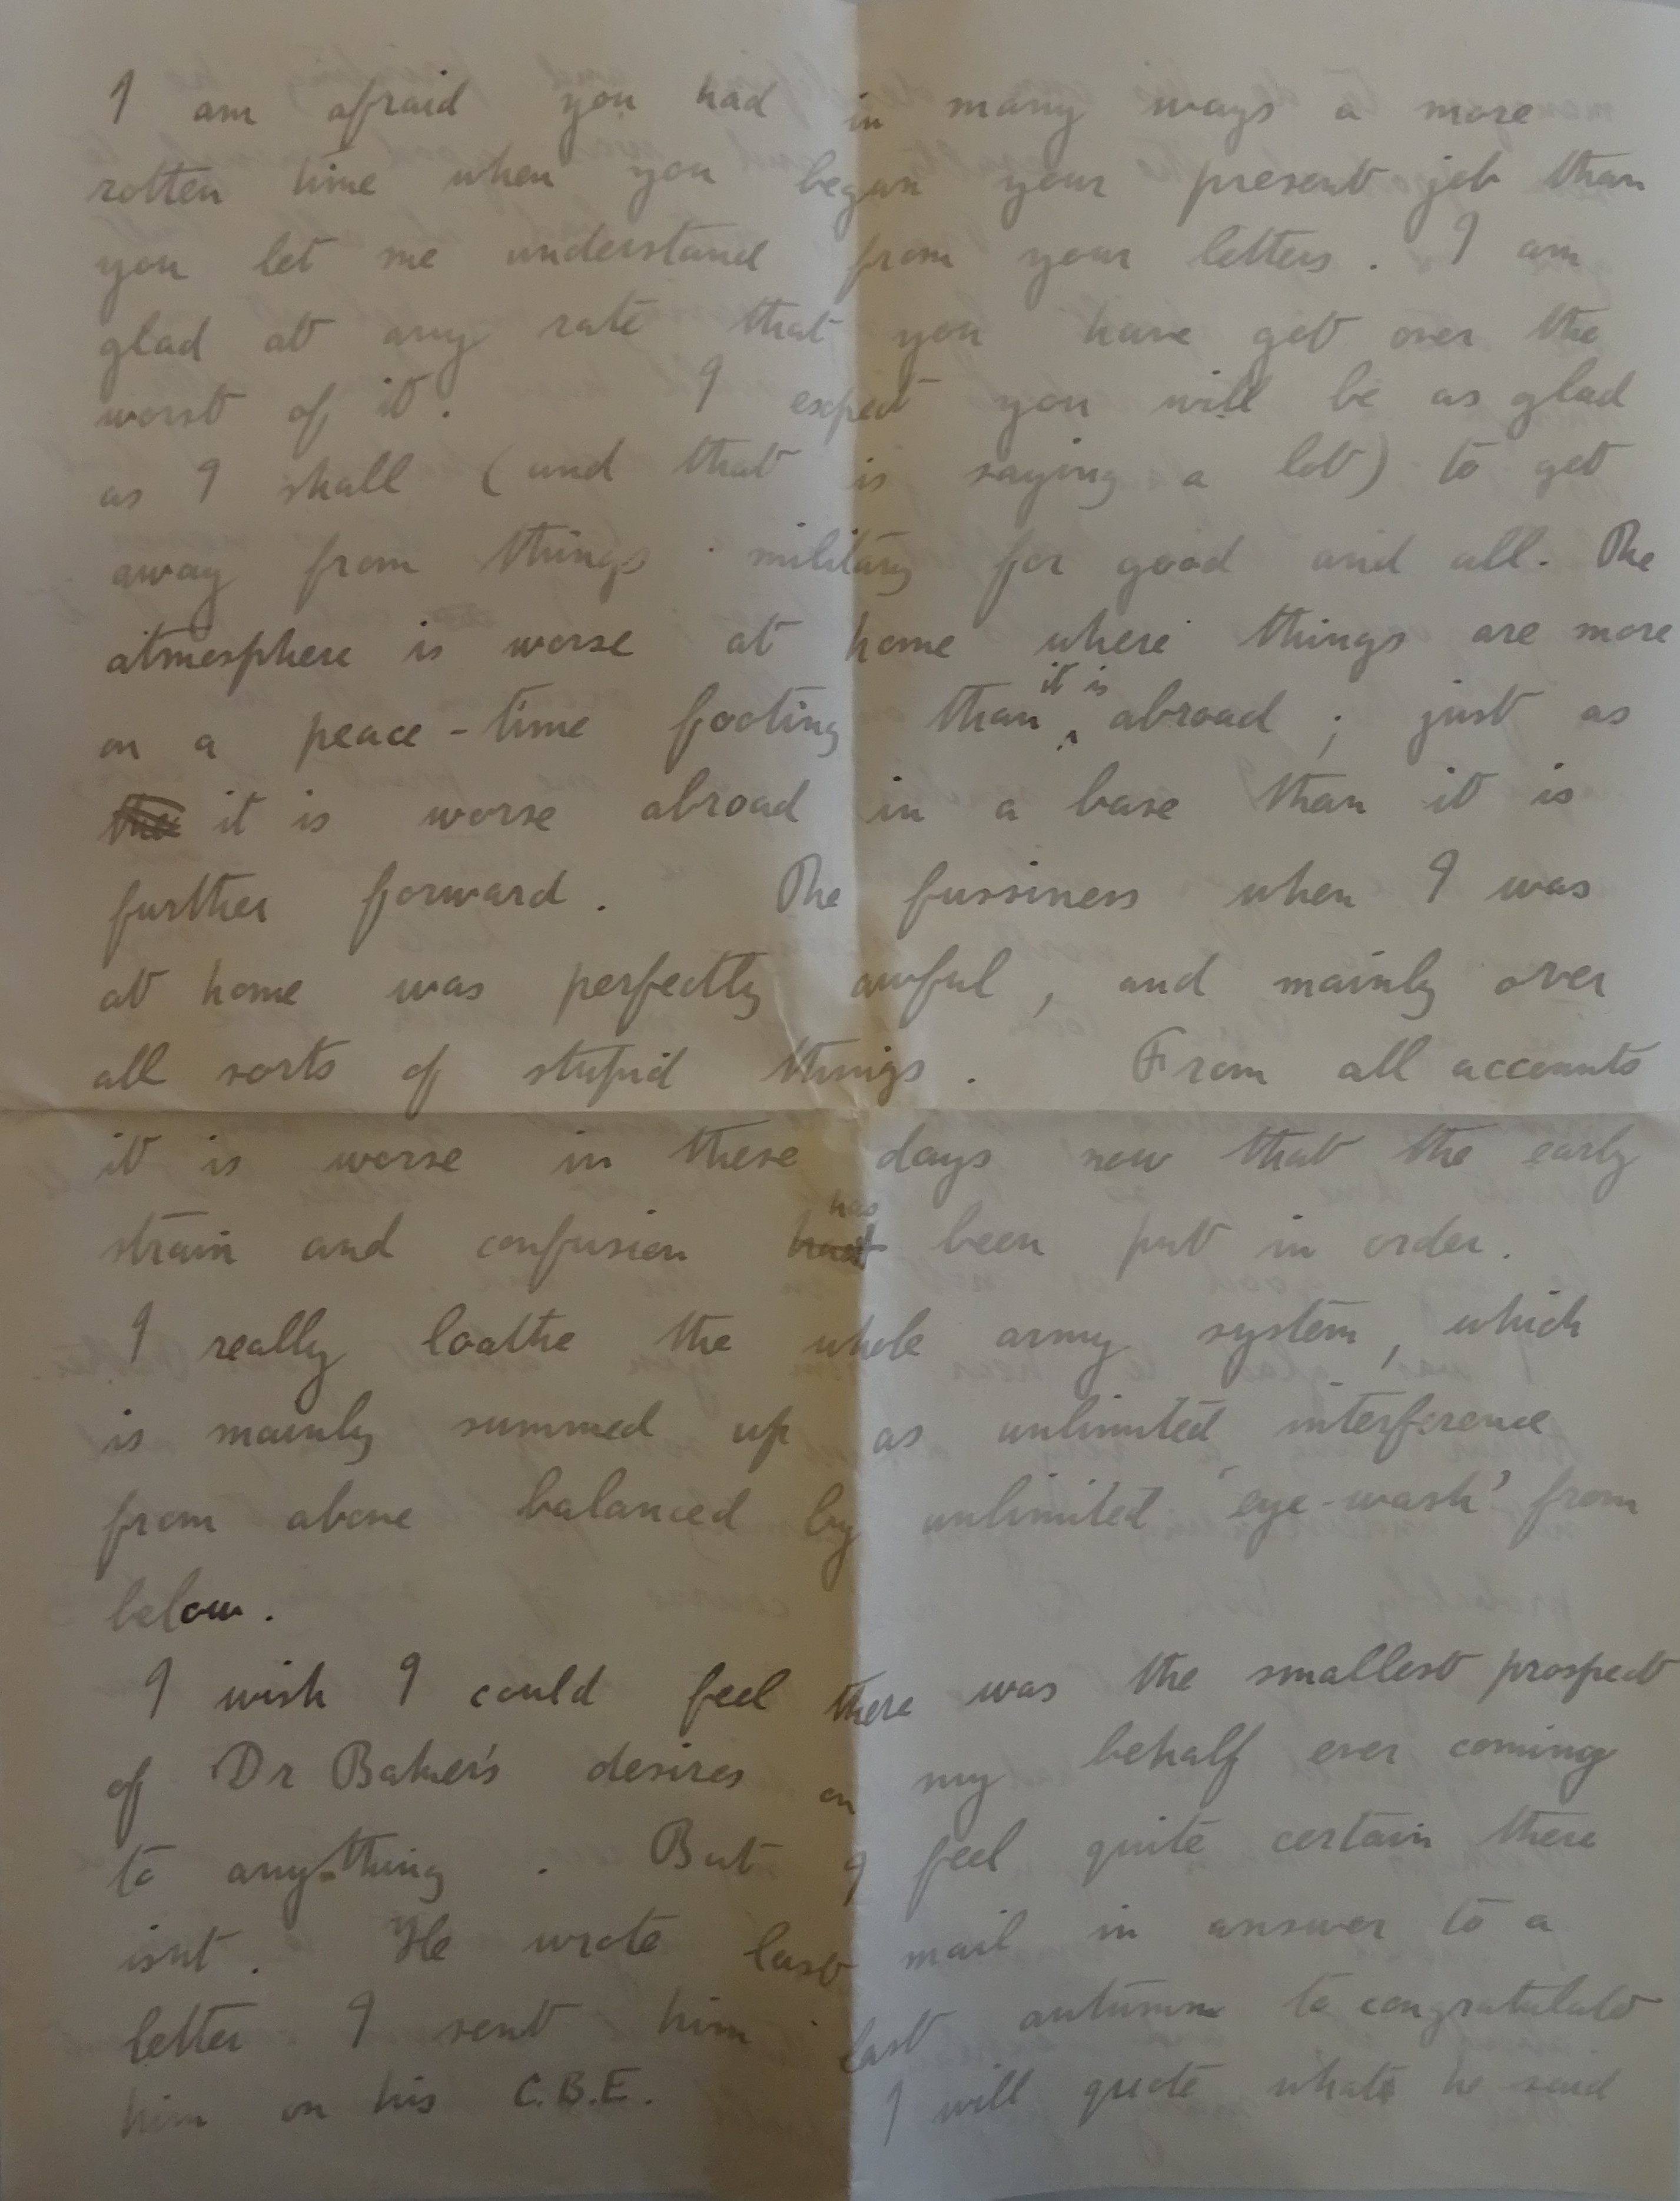 I am afraid you had in many ways a more
rotten time when you began your present job than
you let me understand from your letters. I am
glad at any rate that you have got over the
worst of it. I expect you will be as glad
as I shall (and that is saying a lot) to get
away from things military for good and all. The
atmosphere is worse at home where things are more
on a peace-time footing than it is abroad; just as
the it is worse abroad in a base than it is
further forward. The fussiness when I was
at home was perfectly awful, and mainly over
all sorts of stupid things. From all accounts
it is worse in these days now that the early
strain and confusion has been put in order.
I really loathe the whole army system, which
is mainly summed up as unlimited interference
from above balanced by unlimited 'eye-wash' from
below.
I wish I could feel there was the smallest prospect
of Dr Baker's desires on my behalf ever coming
to anything. But I feel quite certain there
isnt. He wrote last mail in answer to a
letter I sent him last autumn to congratulate
him on his C.B.E. I will quote what he said